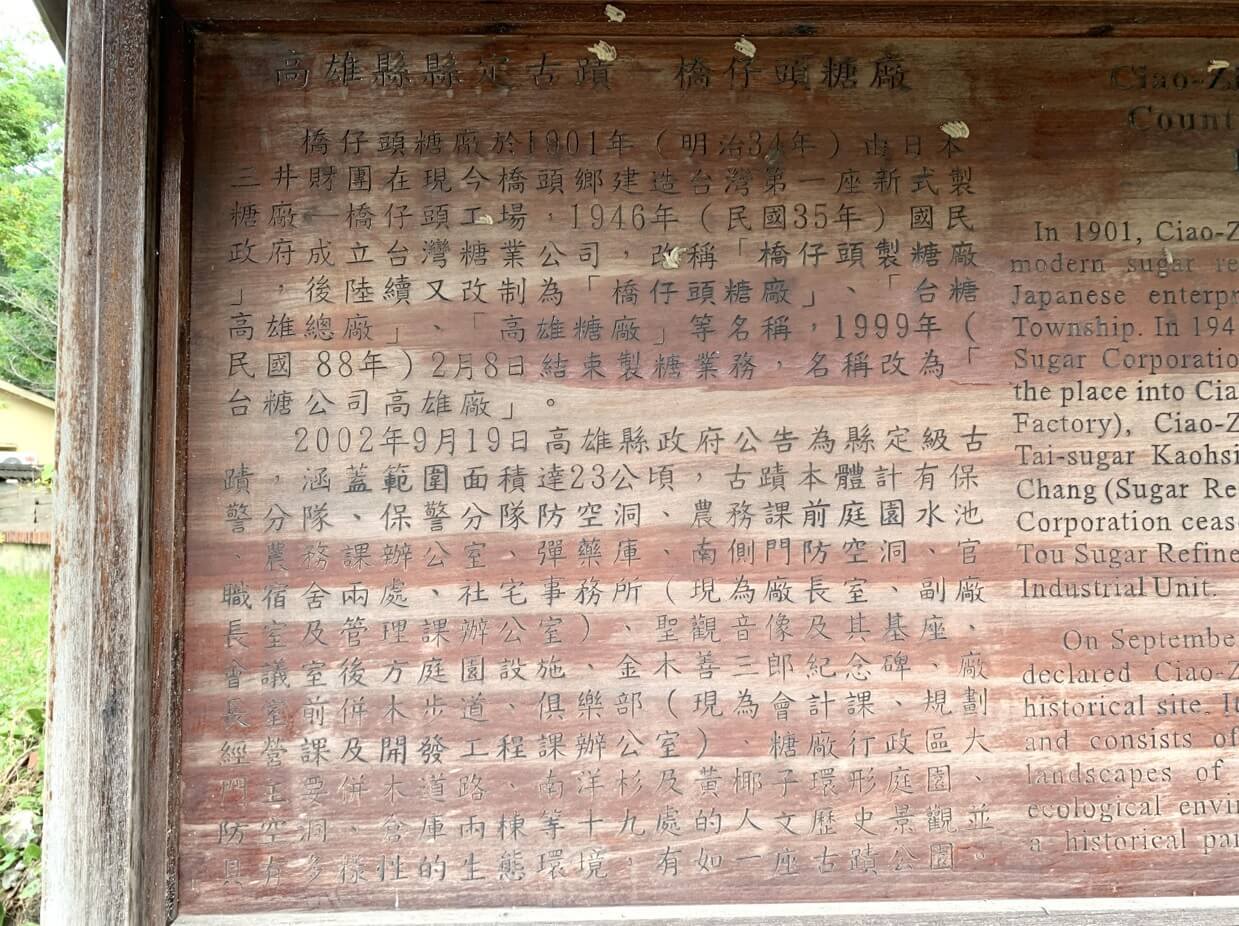 高雄縣縣定古蹟—橋仔頭糖廠
橋仔頭糖廠於1901年（明治34年）由日本
三井財團在現今橋頭鄉建造台灣第一座新式製
糖廠—橋仔頭工場，1946年（民國35年）國民
政府成立台灣糖業公司，改稱「橋仔頭製糖廠
」，後陸續又改制為「橋仔頭糖廠」、「台糖
高雄總廠」、「高雄糖廠」等名稱，1999年（
民國 88年）2月8日結束製糖業務，名稱改為「
台糖公司高雄廠」。
2002年9月19日高雄縣政府公告為縣定級古
蹟，涵蓋範圍面積達23公頃，古蹟本體計有保
警分隊、保警分隊防空洞、農務課前庭園水池
、農務課辦公室、彈藥庫、南側門防空洞、官
職宿舍兩處、社宅事務所（現為廠長室、副廠
長室及管理課辦公室）、聖觀音像及其基座、
會議室後方庭園設施、金木善三郎紀念碑、廠
長室前併木步道、俱樂部（現為會計課、規劃
經營課及開發工程課辦公室）、糖廠行政區大
門主要併木道路、南洋杉及黃椰子環形庭園、
防空洞、倉庫兩棟等十九處的人文歷史景觀並
具有多樣性的生態環境，有如一座古蹟公園。
Ciao-Z
Count
In 1901, Ciao-Z
modern sugar re
Japanese enterpr
Township. In 194
Sugar Corporatio
the place into Cia
Factory), Ciao-Z
Tai-sugar Kaohsi
Chang (Sugar Re
Corporation ceas
Tou Sugar Refine
Industrial Unit.
On September
declared Ciao-Z
historical site. It
and consists of
landscapes of
ecological envir
a historical par